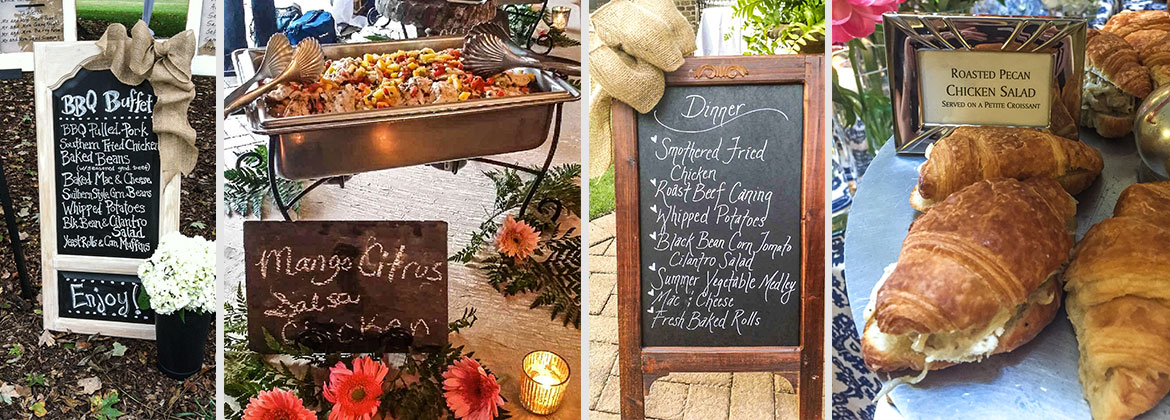 BBQ Buffet
BBQ Pulled Pork
Southern Fried Chicken
Baked Beans
Baked Mac & Cheese
Southern Style Grn Beans
Whipped Potatoes
Blk Bean & Cilantro
Salad
Yeast Rolls & Corn Muffins
Enjoy!
Mango Citrus
Salsa
Chicken
Dinner
Smothered Fried
Chicken
Roast Beef Caning
Whipped Potatoes
Black Bean Corn Tomato
Cilantro Salad
Summer Vegetable Medley
Mac & Cheese
Fresh Baked Rolls
Roasted Pecan
Chicken Salad
Served on a Petite Croissant